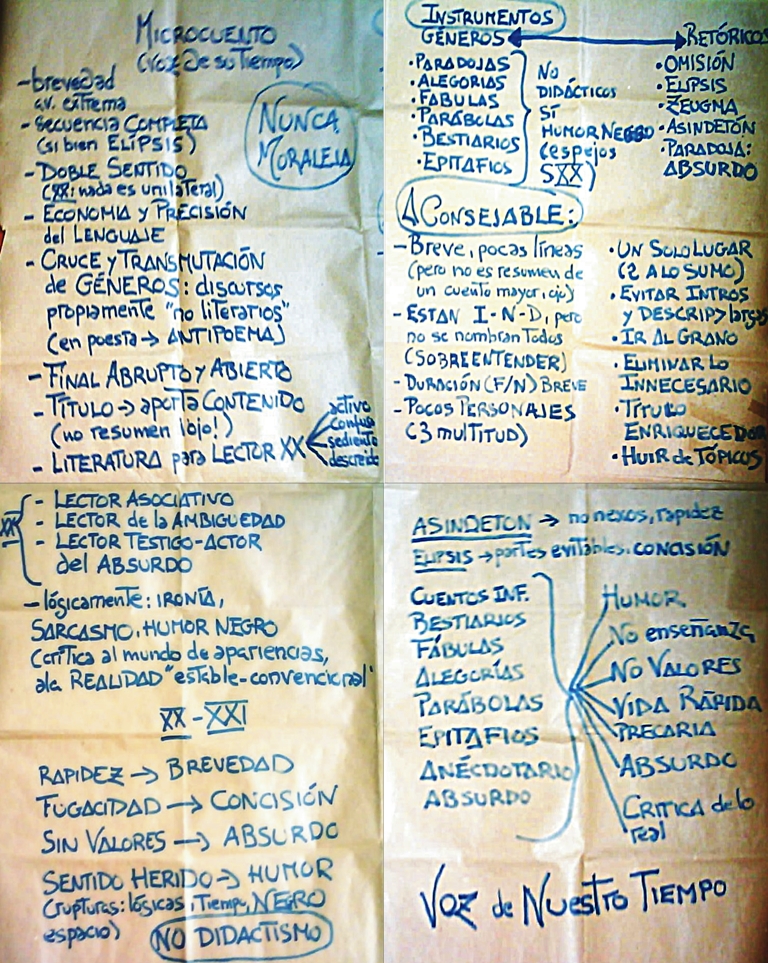 MICROCUENTO
(Voz de su Tiempo)
-brevedad
av. extrema
-SECUENCIA COMPLETA
(si bien ELIPSIS)
-DOBLE SENTIDO
(XX: nada es unilateral)
-ECONOMIA y PRECISIÓN
del LENGUAJE
-CRUCE y TRANSMUTACIÓN
de GÉNEROS: discursos
propiamente "no literarios"
(en poesía → ANTIPOEMA)
-FINAL ABRUPTO y ABIERTO
-TÍTULO → aporta CONTENIDO
(no resumen ¡ojo!)
-LITERATURA para LECTOR XX
activo
confuso
sediento
descreído
NUNCA
MORALEJA
INSTRUMENTOS
GÉNEROS ↔ RETÓRICOS
•PARADOJAS
•ALEGORIAS
•FÁBULAS
•PARÁBOLAS
•BESTIARIOS
•EPITAFIOS
NO
DIDÁCTICOS
SÍ
HUMOR NEGRO
(espejos
SXX)
•OMISIÓN
•ELIPSIS
•ZEUGMA
•ASINDETÓN
•PARADOJA:
ABSURDO
ACONSEJABLE:
-Breve, pocas líneas
(pero no es resumen de
un cuento mayor, ojo)
-ESTÁN I-N-D, pero
no se nombran Todos
(SOBREENTENDER)
-DURACIÓN (F/N) BREVE
-POCOS PERSONAJES
(3 multitud)
•UN SOLO LUGAR
(2 A LO SUMO)
•EVITAR INTROS
y DESCRIP> largas
•IR AL GRANO
•ELIMINAR LO
INNECESARIO
•TÍTULO
ENRIQUECEDOR
•HUIR de TÓPICOS
XX
- LECTOR ASOCIATIVO
- LECTOR de la AMBIGUEDAD
- LECTOR TESTIGO-ACTOR
del ABSURDO
-lógicamente: IRONÍA,
SARCASMO, HUMOR NEGRO
(crítica al mundo de apariencias,
a la REALIDAD "estable-convencional"
XX-XXI
RAPIDEZ → BREVEDAD
FUGACIDAD → CONCISIÓN
SIN VALORES → ABSURDO
SENTIDO HERIDO → HUMOR
(rupturas: lógicas, Tiempo, NEGRO
espacio)
NO DIDACTISMO
ASINDETON → no nexos, rapidez
ELIPSIS → partes evitables. CONCISIÓN
CUENTOS INF.
BESTIARIOS
FÁBULAS
ALEGORÍAS
PARÁBOLAS
EPITAFIOS
ANÉCDOTARIO
ABSURDO
HUMOR
No enseñanza
NO VALORES
VIDA RÁPIDA
PRECARIA
ABSURDO
CRÍTICA de lo
real
VOZ de NUESTRO TIEMPO